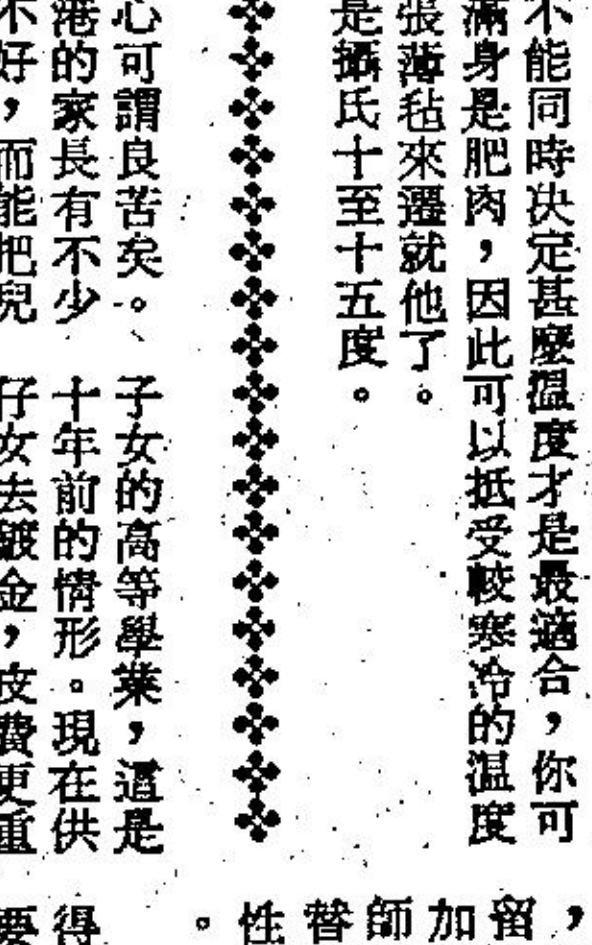 不能同時決定甚麼溫度才是最適合，你可
滿身是肥肉，因此可以抵受較寒冷的溫度
張薄毡來遷就他了。
是攝氏十至十五度。
心可謂良苦矣。
港的家長有不少
不好，而能把兒
子女的高等學業，這是
十年前的情形。現在供
仔女去鍍金，皮費更重
，留加師替性。
得
要